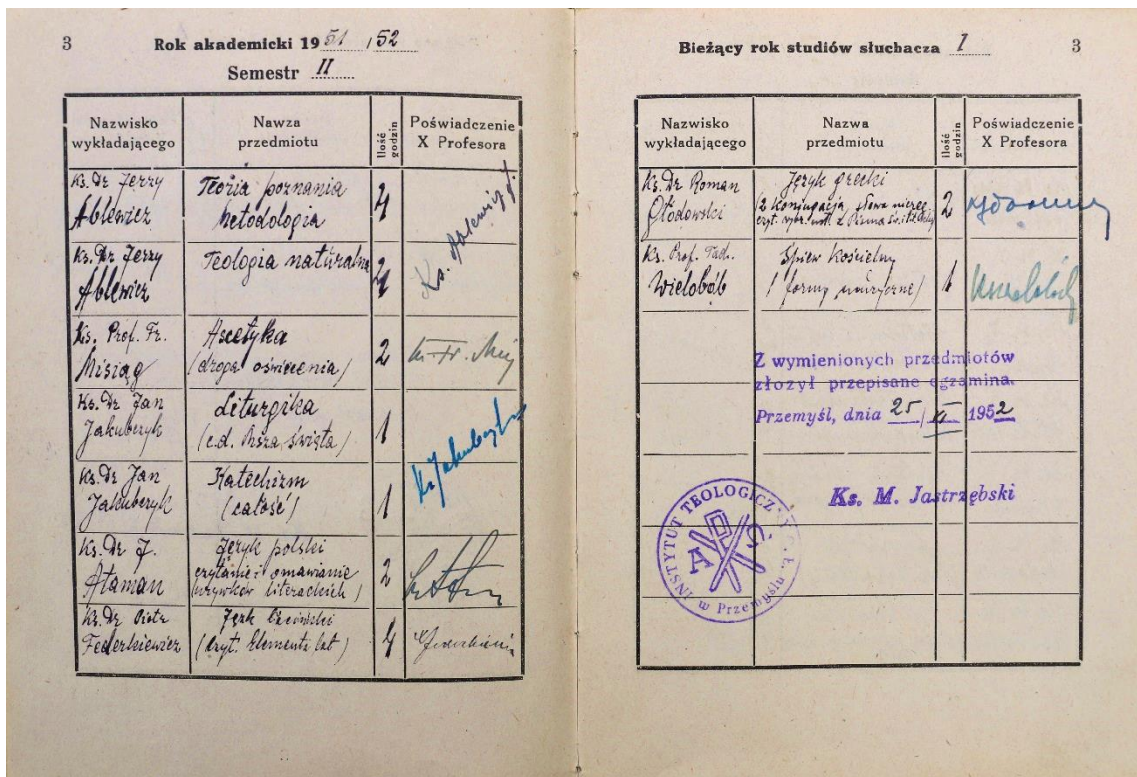 3
Rok akademicki 1951/52
Semestr II
Nazwisko wykładającego
Nawza przedmiotu
Ilość godzin
Poświadczenie X Profesora
Ks. Dr Jerzy
Ablewicz
Teoria poznania
Metodologia
4
Ks. Ablewicz J.
Ks. Dr Jerzy
Ablewicz
Teologia naturalna
4
Ks. Prof. Fr.
Misiąg
Ascetyka
(droga oświecenia)
2
Ks. Dr Jan
Jakubczyk
Liturgika
(c.d. Msza święta)
1
Ks. Jakubczyk
Ks. Dr Jan
Jakubczyk
Katechizm
(całość)
1
Ks. Dr J.
Ataman
Język polski
czytanie i omawianie
urywków literackich)
2
Ks. Dr Piotr
Federkiewicz
Język łaciński
(czyt. Elementa lat)
4
Bieżący rok studiów słuchacza I
3
Nazwisko wykładającego
Nazwa przedmiotu
Ilość godzin
Poświadczenie X Profesora
Ks. Dr Roman
Głodowski
Język grecki
(2 koniugacja, słowa niereg.
czyt. wybr. ust. z Pisma św.
2
Ks. Prof. Tad.
Wielobób
Śpiew kościelny
/ formy muzyczne /
1
Z wymienionych przedmiotów
złożył przepisane egzamina.
Przemyśl, dnia 25/ 1952
Ks. M. Jastrzębski
INSTYTUT TEOLOGICZ
w Przemyślu